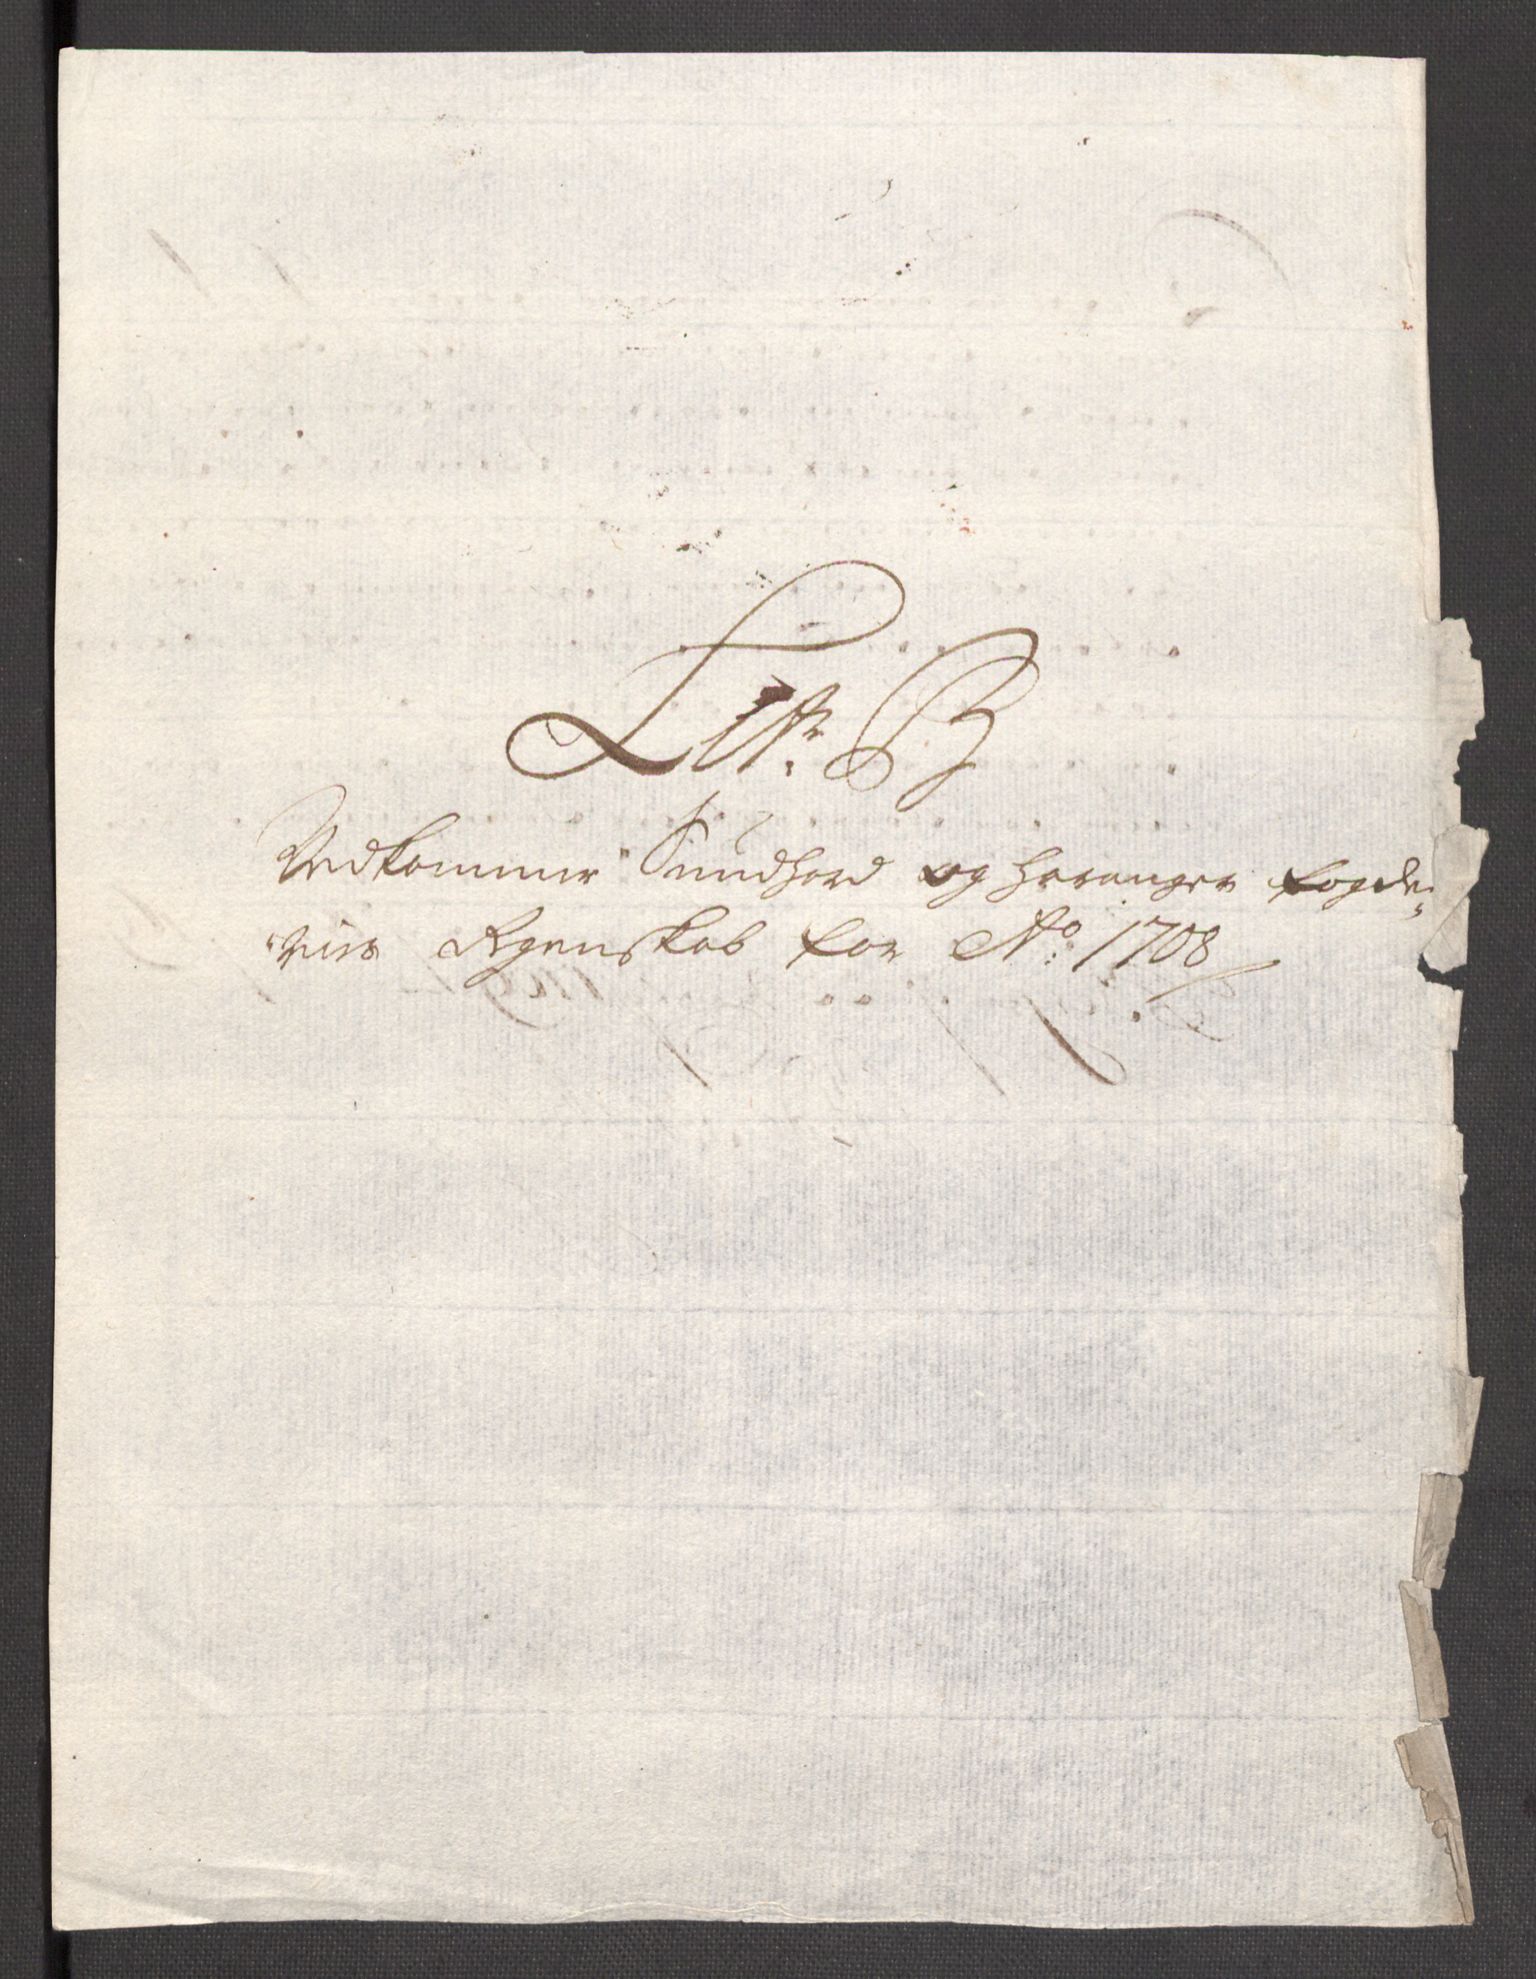 Litr. B
Vedkommer Sundhord og Haranger fogde„
„riis Regenskab for Ao: 1708